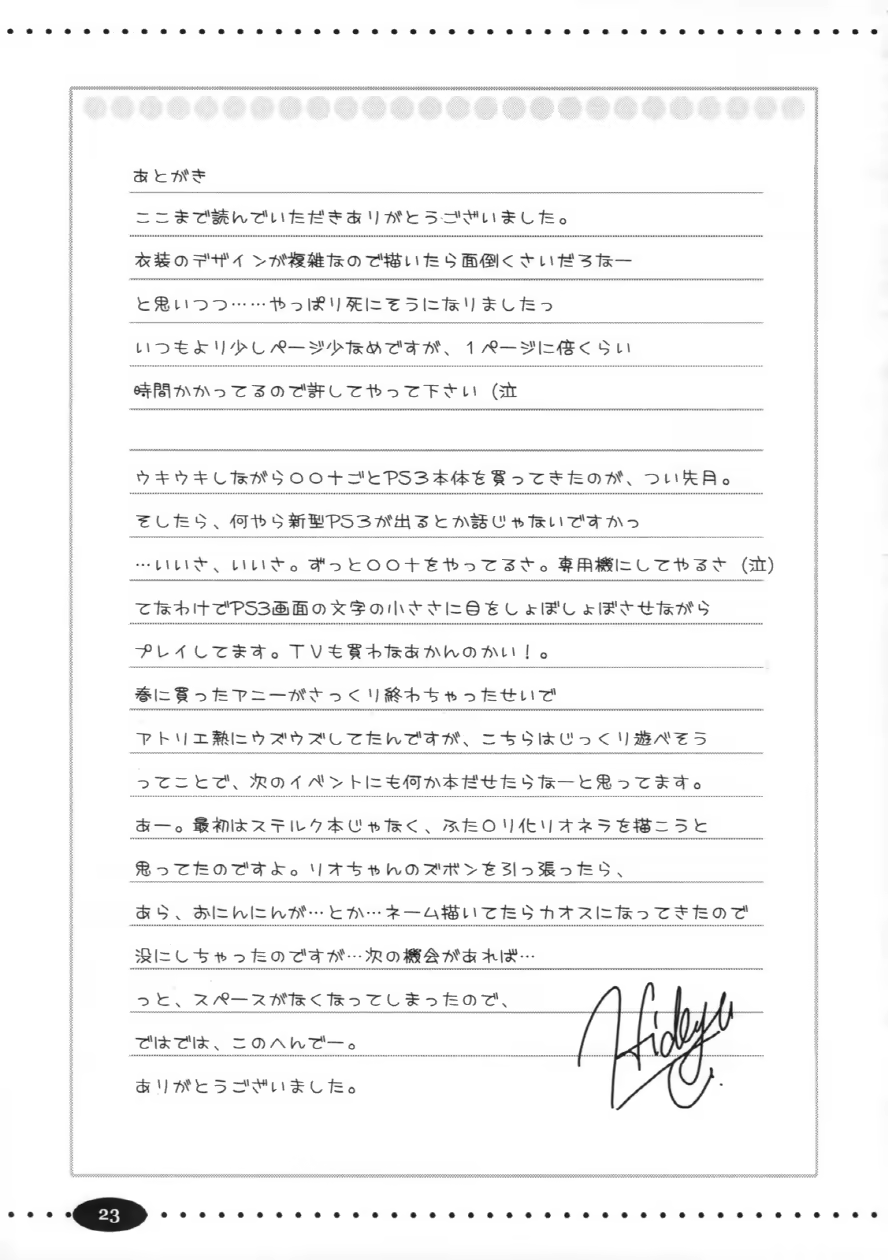 あとがき
ここまで読んでいただきありがとうございました。
衣装のデザインが複雑なので描いたら面倒くさいだろなー
と思いつつ……やっぱり死にそうになりましたっ
いつもより少しページ少なめですが、1ページに倍くらい
時間かかってるので許してやって下さい (泣
ウキウキしながら〇〇十ごとPS3本体を買ってきたのが、つい先月。
そしたら、何やら新型PS3が出るとか話じゃないですかっ
…いいさ、いいさ。ずっと〇〇十をやってるさ。専用機にしてやるさ (泣)
てなわけでPS3画面の文字の小ささに目をしょぼしょぼさせながら
プレイしてます。TVも買わなあかんのかい！。
春に買ったアニーがさっくり終わちゃったせいで
アトリエ熱にウズウズしてたんですが、こちらはじっくり遊べそう
ってことで、次のイベントにも何か本だせたらなーと思ってます。
あー。最初はステルク本じゃなく、ふた〇リ化リオネラを描こうと
思ってたのですよ。リオちゃんのズボンを引っ張ったら、
あら、おにんにんが…とか…ネーム描いてたらカオスになってきたので
没にしちゃったのですが…次の機会があれば…
っと、スペースがなくなってしまったので、
ではでは、このへんでー。
ありがとうございました。
Hideyu
23